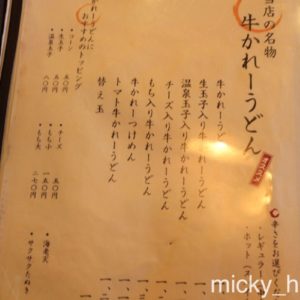 当店の名物
牛かれーうどん
辛さをお選びく
・レギュラー
・ホット
牛かれーうどん
生玉子入り牛かれーうどん
温泉玉子入り牛かれーうどん
チーズ入り牛かれーうどん
もち入り牛かれーうどん
牛かれーつけめん
トマト牛かれーうどん
替え玉
かれーうどんに
おすすめのトッピング
・生玉子 五〇円
・温泉玉子 八〇円
・チーズ 五〇円
・もち小 一五〇円
・もち大 二七〇円
・海老天
・サクサクたぬき
micky_h